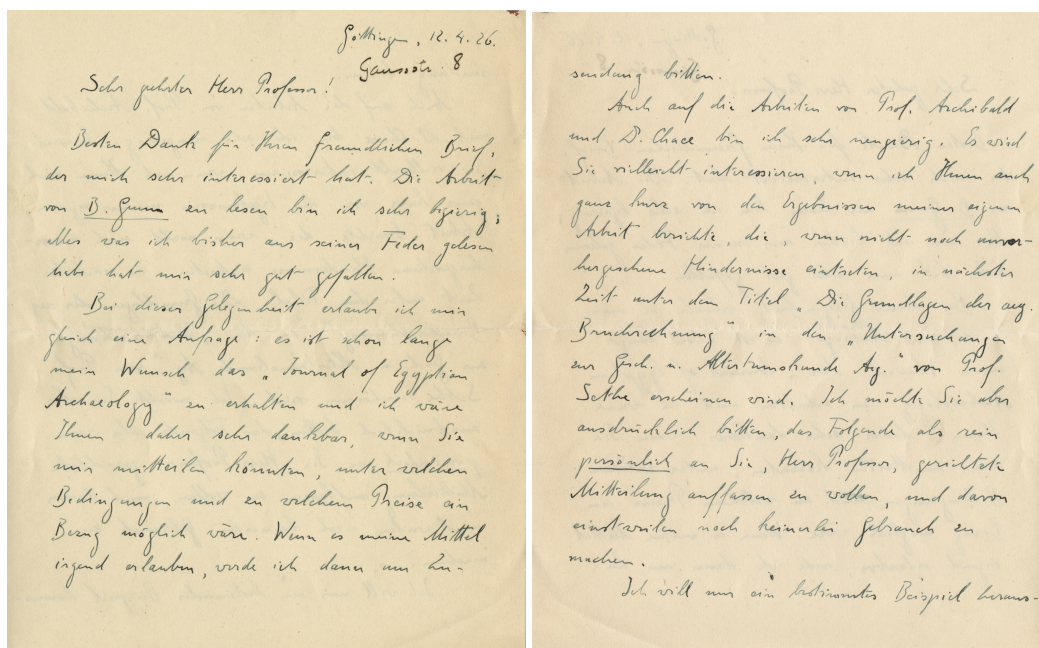 Göttingen, 12.4.26.
Gaussstr. 8
Sehr geehrter Herr Professor!
Besten Dank für Ihren freundlichen Brief,
der mich sehr interessiert hat. Die Arbeit
von B. Gunn zu lesen bin ich sehr begierig;
alles was ich bisher aus seiner Feder gelesen
habe hat mir sehr gut gefallen.
Bei dieser Gelegenheit erlaube ich mir
gleich eine Anfrage: es ist schon lange
mein Wunsch das „Journal of Egyptian
Archaeology" zu erhalten und ich wäre
Ihnen daher sehr dankbar, wenn Sie
mir mitteilen könnten, unter welchen
Bedingungen und zu welchem Preise ein
Bezug möglich wäre. Wenn es meine Mittel
irgend erlauben, werde ich dann um Zu-
sendung bitten.
Auch auf die Arbeiten von Prof. Archibald
und Dr. Chace bin ich sehr neugierig. Es wird
Sie vielleicht interessieren, wenn ich Ihnen auch
ganz kurz von den Ergebnissen meiner eigenen
Arbeit berichte, die, wenn nicht noch unvor-
hergesehene Hindernisse eintreten, in nächster
Zeit unter dem Titel „Die Grundlagen der aeg.
Bruchrechnung" in den „Untersuchungen
zur Gesch. u. Altertumskunde Aeg." von Prof.
Sethe erscheinen wird. Ich möchte Sie aber
ausdrücklich bitten, das Folgende als rein
persönlich an Sie, Herr Professor, gerichtete
Mitteilung auffassen zu wollen, und davon
einstweilen noch keinerlei Gebrauch zu
machen.
Ich will nur ein bestimmtes Beispiel heraus-